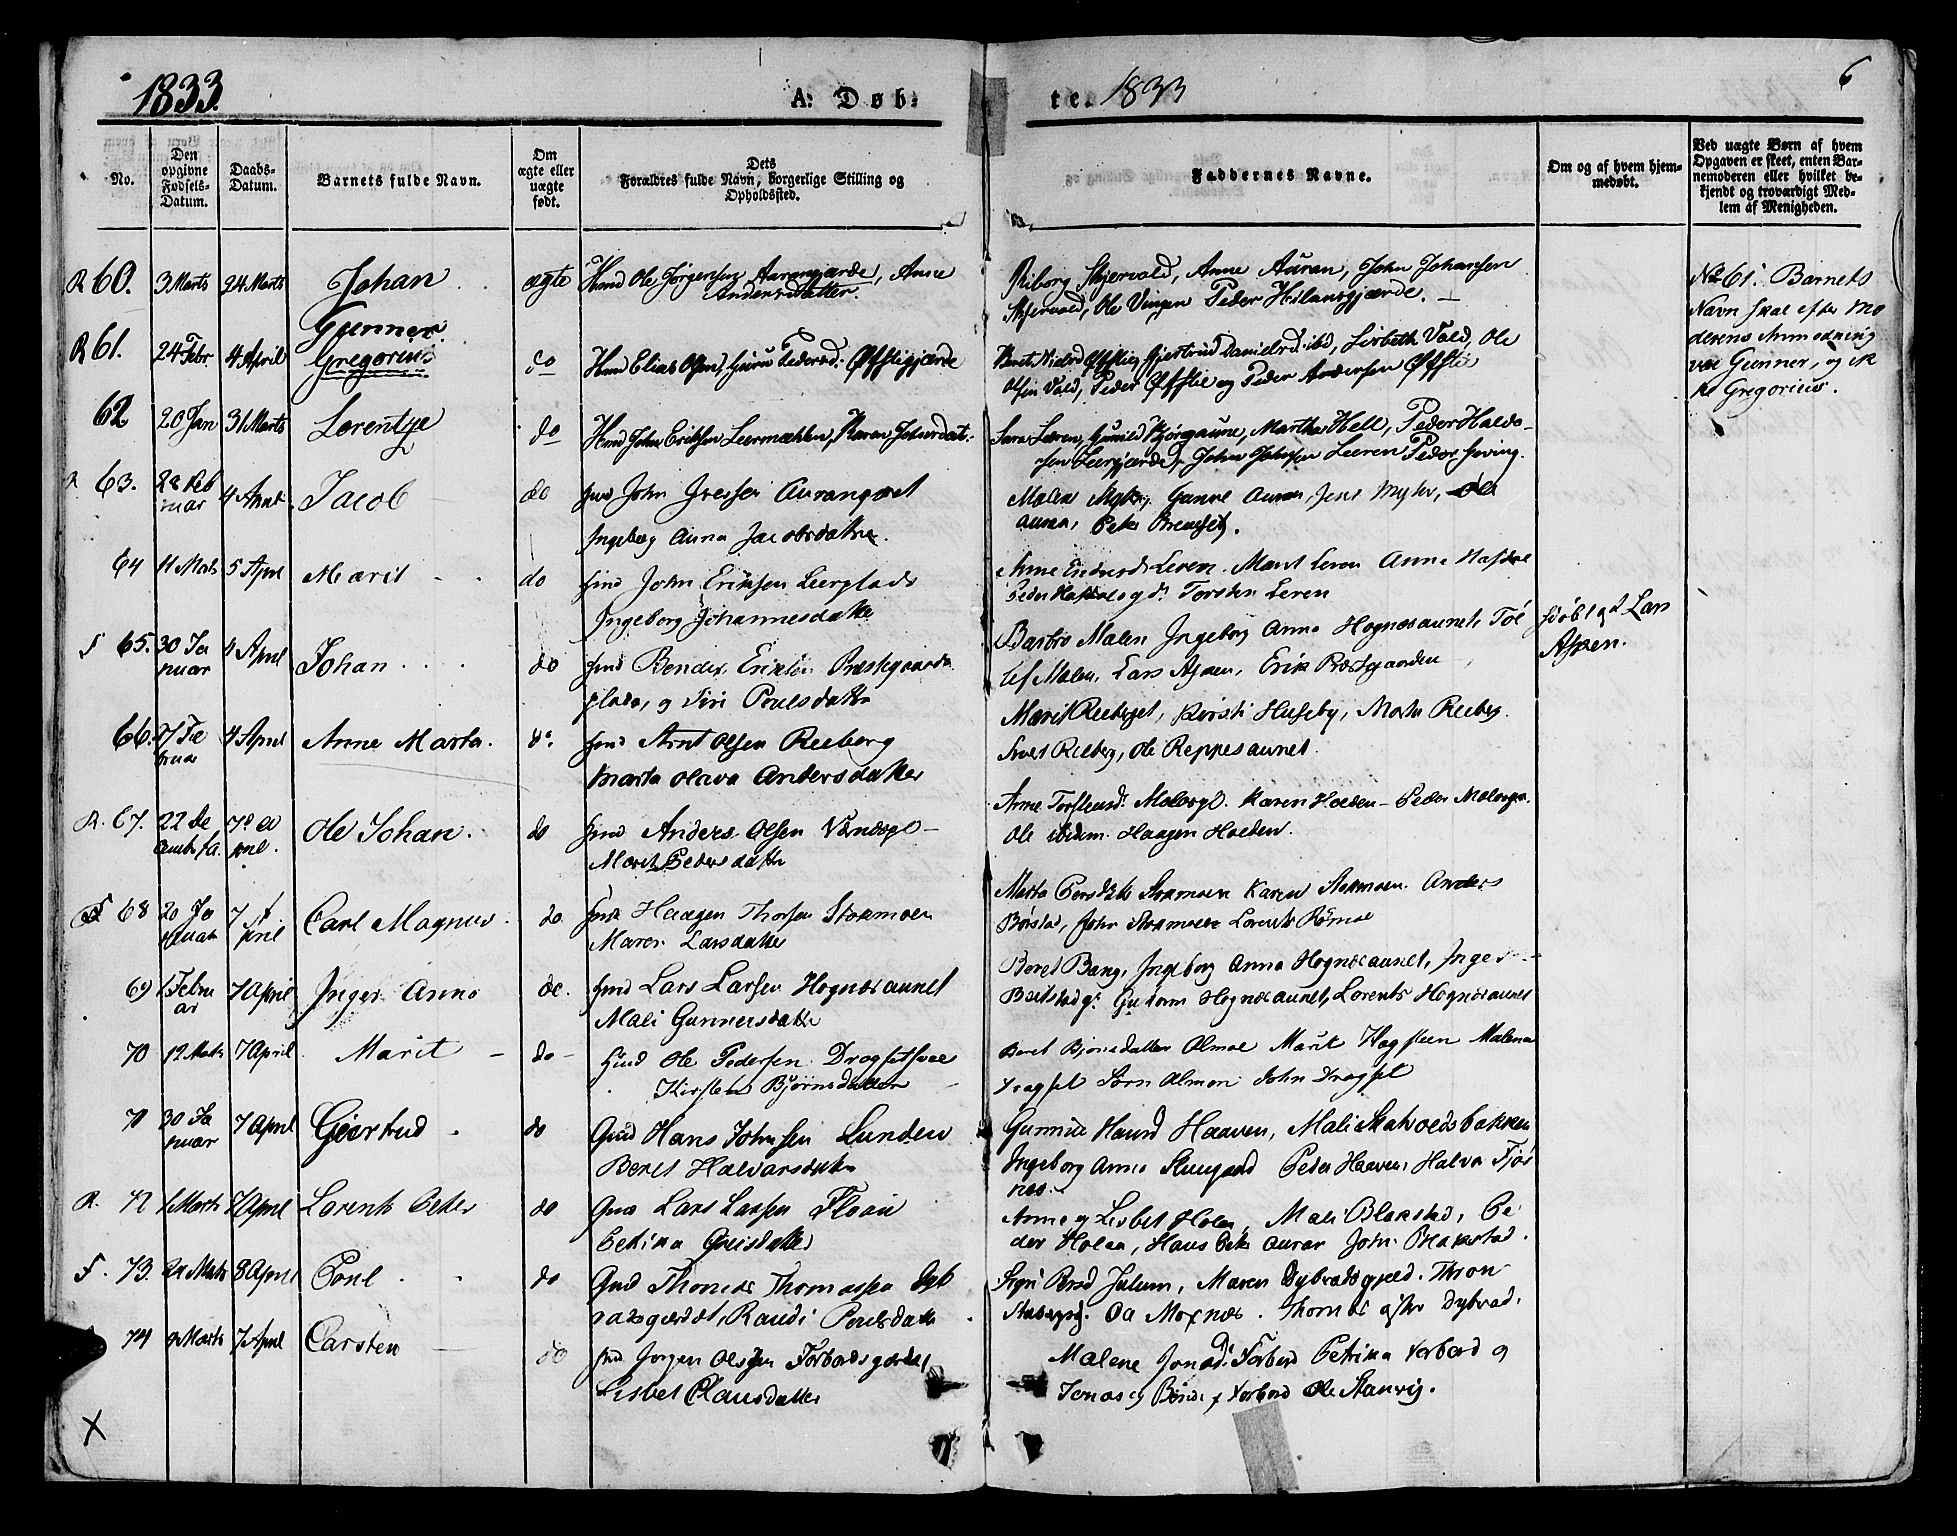 1833. A: Døb- te. 1833 6
No.
Den opgivne Fødsels-Datum.
Daabs-Datum.
Barnets fulde Navn.
Om ægte eller uægte født.
Dets Forældres fulde Navn, borgerlige Stilling og Opholdssted.
Faddernes Navne.
Om og af hvem hjemmedøbt.
Ved uægte Børn af hvem Opgaven er skeet, enten Barnemoderen eller hvilket bekjendt og troværdigt Medlem af Menigheden.
R 60. 3 Marts 24 Marts Johan ægte Hmd Ole Jørgensen Aurangjærde, Anne
Andersdatter.
Riborg Skjervold, Anne Auran, John Johansen
Skjervold, Ole Vingen Peder Hilansgjærde. —
Gunner.
R 61. 24 Febr. 4 April Gregorius do Hmd Elias Olsen, Guru Pedersd. Øfstigjærde
Beret Nielsd Øfstie, Gjertrud Danielsd. ibd, Lisbeth Vold, Ole
Olsen Vold, Peder Øfstie og Peder Andersen Øfstie
No 61. Barnets
Navn skal efter Mo
derens Anmodning
være Gunner, og ik
ke Gregorius.
62 20 Jan 31 Marts Lorentze do Hmd John Eriksen Leermælen, Karen Johnsdat:
Sara Leeren, Gunild Bjørgaune, Martha Hell, Peder Haldo-
sen Leergjærde, John Johnsen Leeren Peder Hoving.
R 63. 28 Feb
ruar 4 April Jacob do hmd John Jressen Auranaaset
Ingeborg Anna Jacobsdatter.
Malen Myhr, Gunne Auran, Jens Myhr, Ole
Auran, Peter
64 11 Marts 5 April Marit do hmd John Eriksen Leerplads
Ingeborg Johannesdatter
Anne Leren. Marit Leren Anne
Peder og do. Torsten Leren
F 65. 30 Ja
nuar 4 April Johan do hmd Bendix Eriksen Præstegaards
plads, og Siri Poulsdatter
Barbro Malen Ingeborg Anna Hognæsaunet, Tol
lef Malen, Lars Aspen, Erik Præstgaarden
døbt af Lars
Aspen.
66. 7 Fe
bruar 4 April Anne Marta. do. hmd Arnt Olsen Reeberg
Marta Olava Andersdatter
Marit Reeberget, Kirsti Huseby, Marta Reeberg.
Sivert Reeberg, Ole Reppesaunet.
R. 67. 22 De
7de A
pril. Ole Johan. do hmd Anders Olsen
Marit Pedersdatter
Anne Torstensd. Karen Holden — Peder
Ole ibidem. Haagen Holden.
F 68 20 Ja
nuar 7 A
pril Carl Magnus. do hmd Haagen Thorsen Stokmoen
Maren Larsdatter
Marta Persdatter Stokmoen Karen Stokmoen. Anders
Børstad, John Stokmoen Lorents Rømoe
69 1 Febru
ar 7 April Inger Anna do. hmd Lars Larsen Hognæsaunet
Mali Gunnersdatter
Beret Bang, Ingeborg Anna Hognæsaunet, Inger
Gutorm Hognæsaunet, Lorents Hognæsaunet
70 12 Marts 7 April Marit — do — hmd Ole Pedersen Dragset
Kirsten Bjørnsdatter
Beret Bjørnsdatter Almoe Marit Hogsteen Malena
Dragset Sørn Almoe John Dragset
71 30 Ja
nuar 7 April Gjertrud. do Gmd Hans Johnsen Lunden
Beret Halvarsdatter
Gunnild Hansd Haaven, Mali Skatvoldsbakken
Ingeborg Anna Peder Haaven, Halvor Fjøs
næs.
R. 72 1 Marts 7 April Lorents Peter do Gmd Lars Larsen Floan
Petrika
Anne og Lisbet Holan, Mali Blokstad, Pe
der Holan, Hans Peter Auran John Blokstad.
F. 73. 24 Marts 8 April Poul. do Gmd Thomas Thomassen Dyb
vadsgærdet, Randi Poulsdatter.
Siri Persd Julum, Maren Dybvadsgjerd. Thron
Ole Moxnæs. Thomas Dybvad.
74 9 Marts 7 April Carsten — do hmd Jørgen Olssen Forbordsgjerdet
Lisbet Clausdatter
Malene Jonasd. Forbord Petrika Forbord og
Jonas og Forbord Ole Stanvig.
X